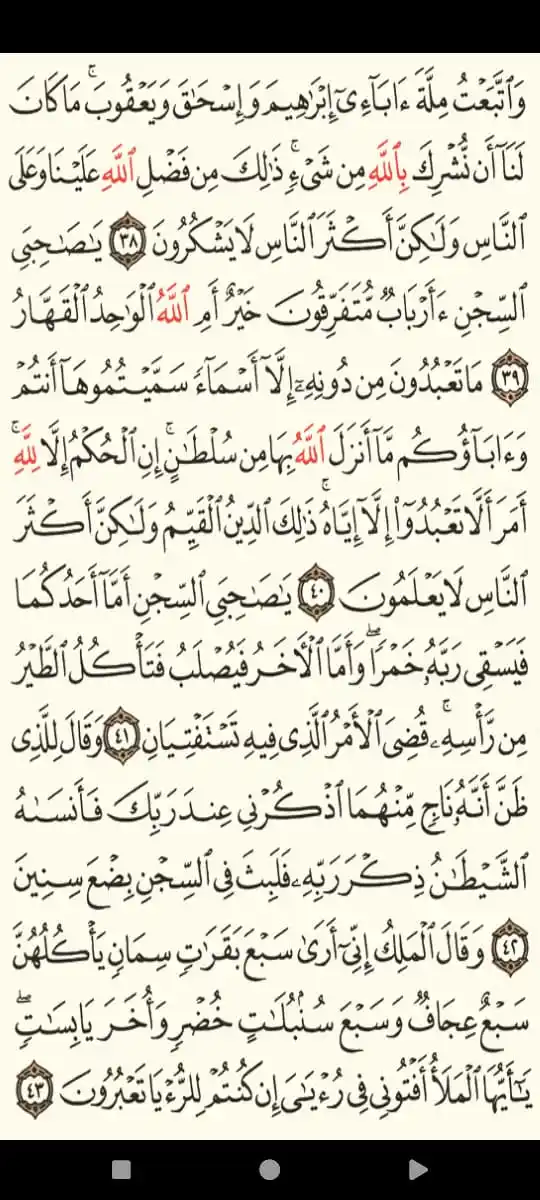 وَٱتَّبَعْتُ مِلَّةَ ءَابَآءِىٓ إِبْرَٰهِيمَ وَإِسْحَٰقَ وَيَعْقُوبَ ۚ مَا كَانَ
لَنَآ أَن نُّشْرِكَ بِٱللَّهِ مِن شَىْءٍ ۚ ذَٰلِكَ مِن فَضْلِ ٱللَّهِ عَلَيْنَا وَعَلَى
ٱلنَّاسِ وَلَٰكِنَّ أَكْثَرَ ٱلنَّاسِ لَا يَشْكُرُونَ ٣٨ يَٰصَٰحِبَىِ
ٱلسِّجْنِ ءَأَرْبَابٌ مُّتَفَرِّقُونَ خَيْرٌ أَمِ ٱللَّهُ ٱلْوَٰحِدُ ٱلْقَهَّارُ
٣٩ مَا تَعْبُدُونَ مِن دُونِهِۦٓ إِلَّآ أَسْمَآءً سَمَّيْتُمُوهَآ أَنتُمْ
وَءَابَآؤُكُم مَّآ أَنزَلَ ٱللَّهُ بِهَا مِن سُلْطَٰنٍ ۚ إِنِ ٱلْحُكْمُ إِلَّا لِلَّهِ ۚ
أَمَرَ أَلَّا تَعْبُدُوٓا۟ إِلَّآ إِيَّاهُ ۚ ذَٰلِكَ ٱلدِّينُ ٱلْقَيِّمُ وَلَٰكِنَّ أَكْثَرَ
ٱلنَّاسِ لَا يَعْلَمُونَ ٤٠ يَٰصَٰحِبَىِ ٱلسِّجْنِ أَمَّآ أَحَدُكُمَا
فَيَسْقِى رَبَّهُۥ خَمْرًا ۖ وَأَمَّا ٱلْءَاخَرُ فَيُصْلَبُ فَتَأْكُلُ ٱلطَّيْرُ
مِن رَّأْسِهِۦ ۚ قُضِىَ ٱلْأَمْرُ ٱلَّذِى فِيهِ تَسْتَفْتِيَانِ ٤١ وَقَالَ لِلَّذِى
ظَنَّ أَنَّهُۥ نَاجٍ مِّنْهُمَا ٱذْكُرْنِى عِندَ رَبِّكَ فَأَنسَىٰهُ
ٱلشَّيْطَٰنُ ذِكْرَ رَبِّهِۦ فَلَبِثَ فِى ٱلسِّجْنِ بِضْعَ سِنِينَ
٤٢ وَقَالَ ٱلْمَلِكُ إِنِّىٓ أَرَىٰ سَبْعَ بَقَرَٰتٍ سِمَانٍ يَأْكُلُهُنَّ
سَبْعٌ عِجَافٌ وَسَبْعَ سُنۢبُلَٰتٍ خُضْرٍ وَأُخَرَ يَابِسَٰتٍ ۖ
يَٰٓأَيُّهَا ٱلْمَلَأُ أَفْتُونِى فِى رُءْيَٰىَ إِن كُنتُمْ لِلرُّءْيَا تَعْبُرُونَ ٤٣